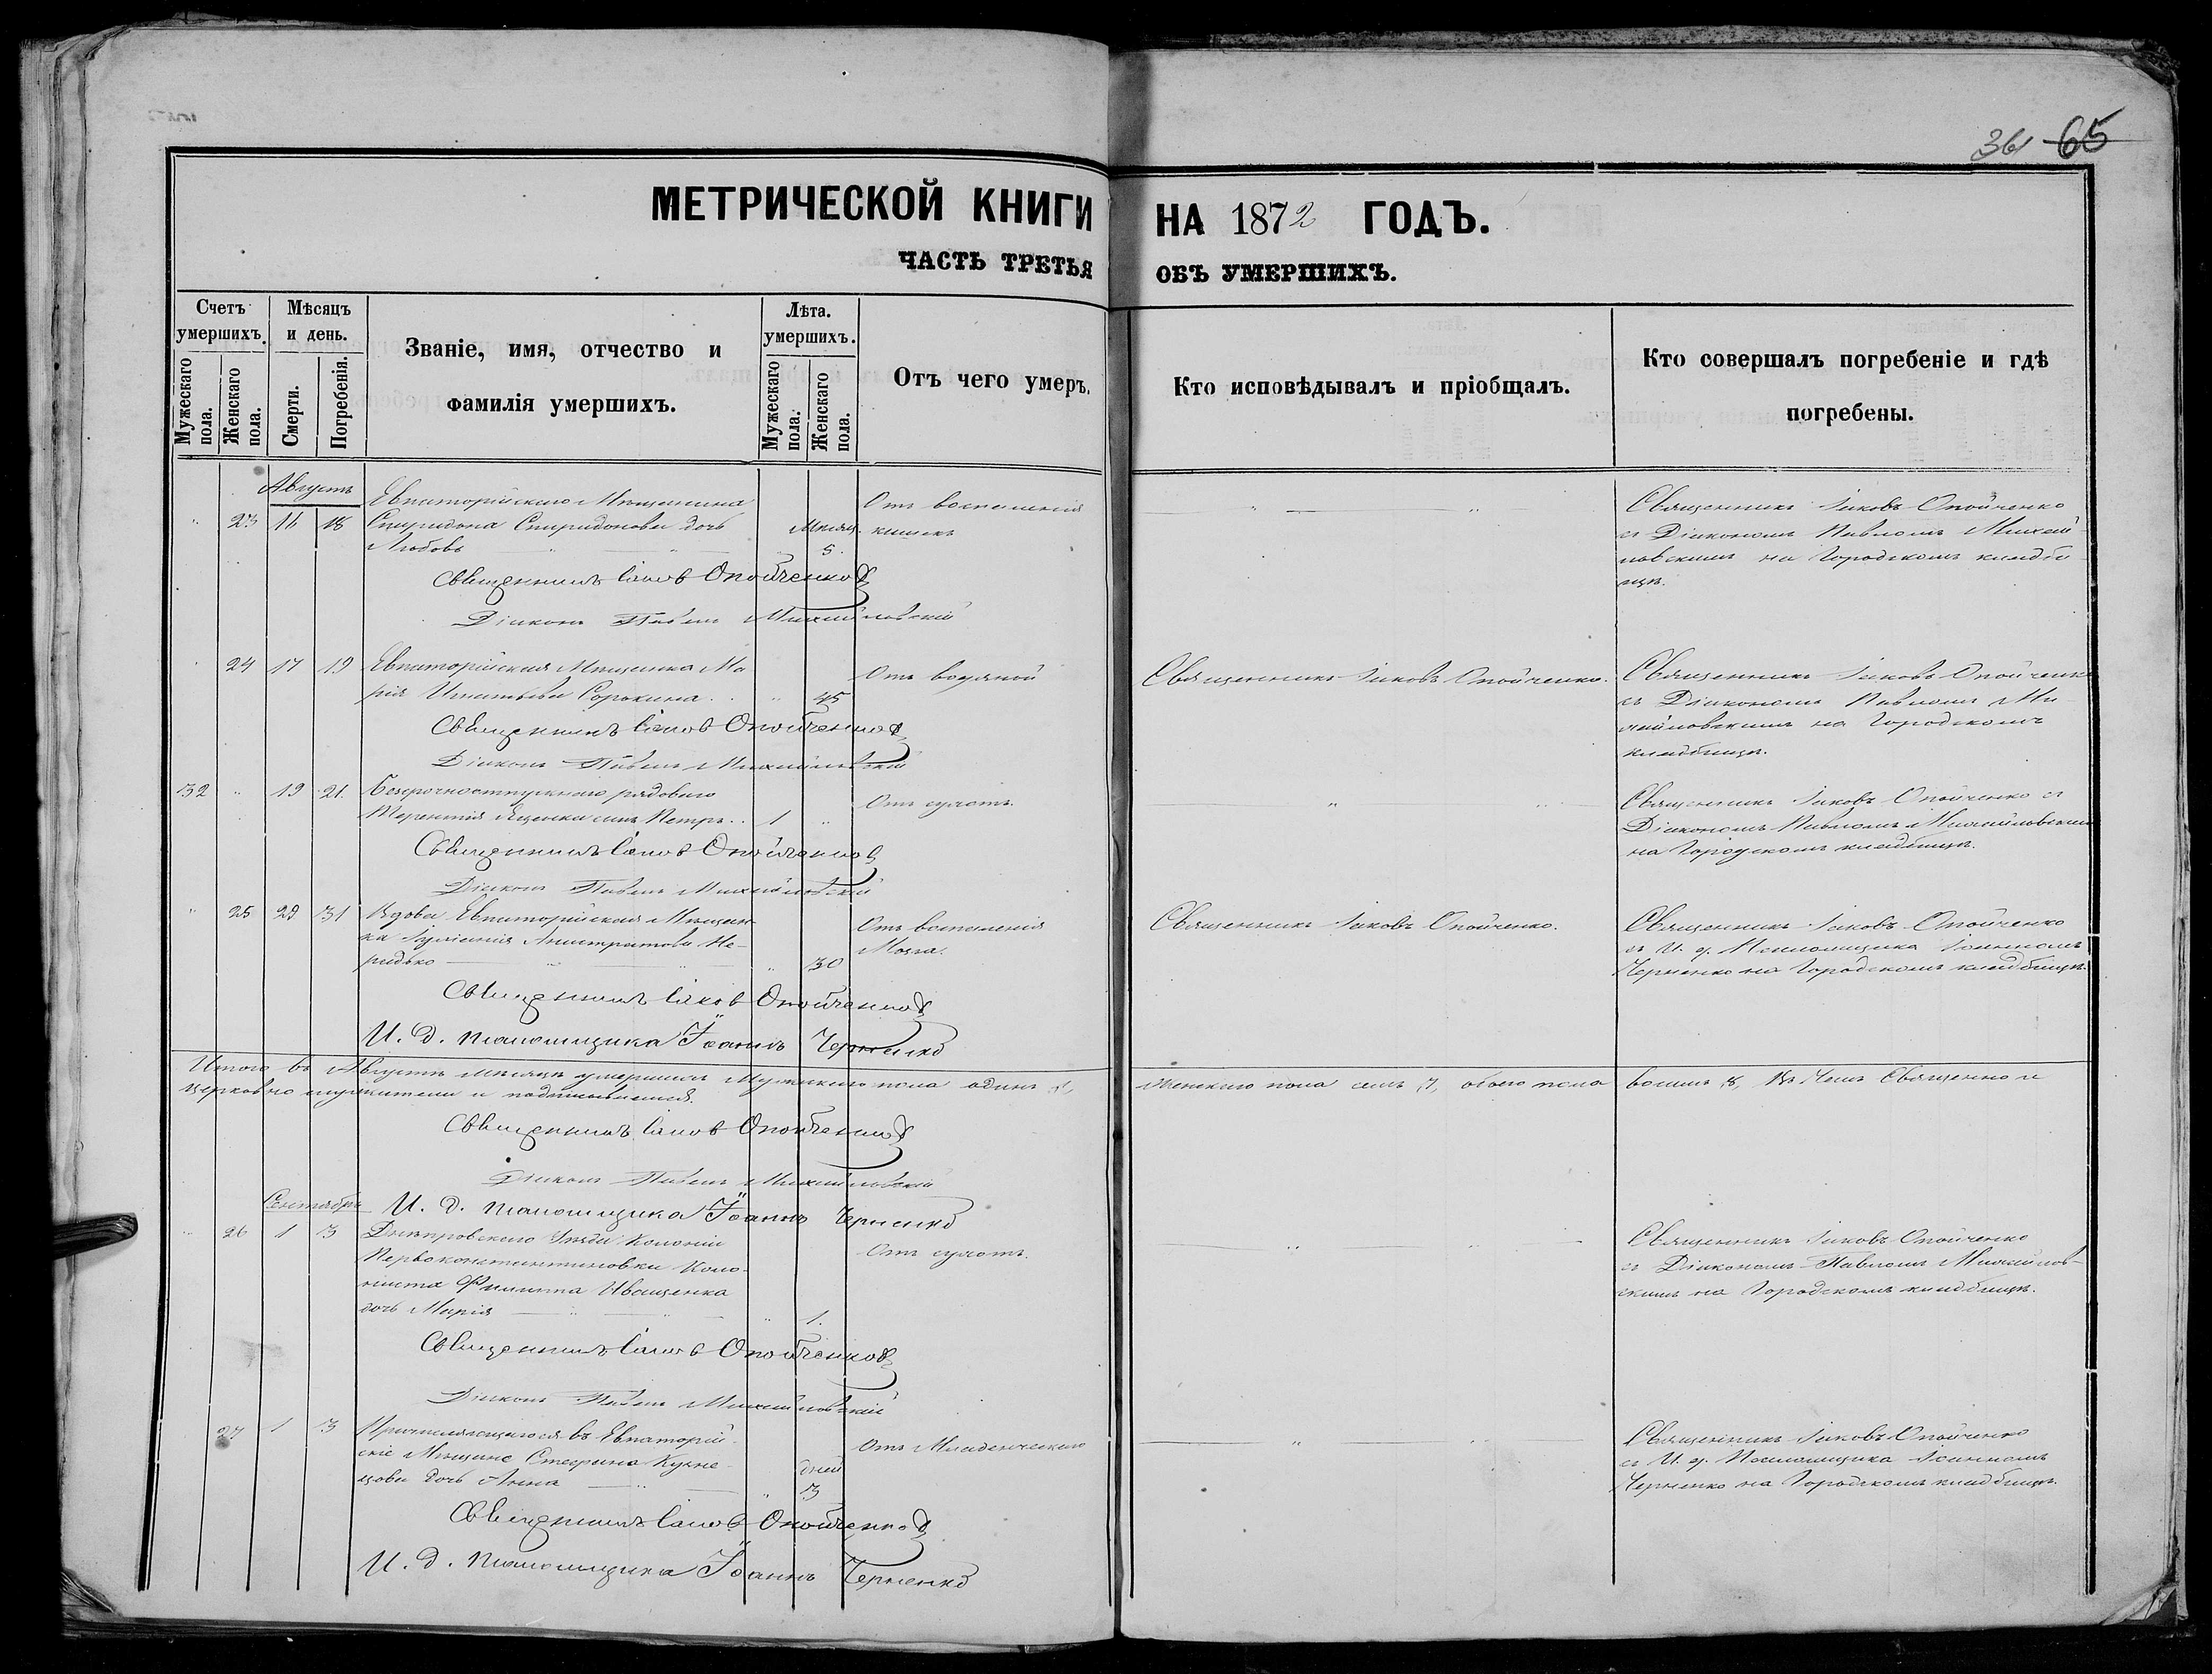 361 65
МЕТРИЧЕСКОЙ КНИГИ НА 1872 ГОДЪ.
ЧАСТЬ ТРЕТЬЯ ОБЪ УМЕРШИХЪ.
Счетъ умершихъ.
Мужескаго пола.
Женскаго пола.
Мѣсяцъ и день.
Смерти.
Погребенія.
Званіе, имя, отчество и
фамилія умершихъ.
Лѣта. умершихъ.
Мужескаго пола.
Женскаго пола.
Отъ чего умеръ.
Кто исповѣдывалъ и пріобщалъ.
Кто совершалъ погребеніе и гдѣ
погребены.
Августъ
23 16 18
Евпаторійскаго Мѣщанина
Спиридона Спиридонова дочь
Любовь
Мѣсяц.
5.
Отъ воспаленія
кишекъ
Священникъ Іаковъ Опойченко
съ Діакономъ Павломъ Михай
ловскимъ на Городскомъ кладби
щѣ.
Священникъ Іаковъ Опойченко
Діаконъ Павелъ Михайловскій
24 17 19
Евпаторійская Мѣщанка Ма
рія Игнатьева Сорокина
45
Отъ водяной
Священникъ Іаковъ Опойченко.
Священникъ Іаковъ Опойченко
съ Діакономъ Павломъ Ми-
хайловскимъ на Городскомъ
кладбищѣ.
Священникъ Іаковъ Опойченко
Діаконъ Павелъ Михайловскій
32 19 21
Безсрочноотпускнаго рядоваго
Терентія Яценка сынъ Петръ
1
Отъ сухотъ.
Священникъ Іаковъ Опойченко съ
Діакономъ Павломъ Михайловскимъ
на Городскомъ кладбищѣ.
Священникъ Іаковъ Опойченко
Діаконъ Павелъ Михайловскій
25 29 31
Вдова Евпаторійская Мѣщан-
ка Іуліанія
30
Отъ воспаленія
Мозга.
Священникъ Іаковъ Опойченко.
Священникъ Іаковъ Опойченко
съ И. д. Псаломщика Іоанномъ
Черненко на Городскомъ кладбищѣ.
Священникъ Іаковъ Опойченко
И. д. псаломщика Іоаннъ Черненко
Итого въ Августѣ мѣсяцѣ умершихъ Мужскаго пола одинъ 1, Женскаго пола семь 7, обоего пола восемь 8, Въ чемъ Священно и
церковно служители и подписываемся.
Священникъ Іаковъ Опойченко
Діаконъ Павелъ Михайловскій
И. д. псаломщика Іоаннъ Черненко
Сентябрь
26 1 3
Днѣпровскаго Уѣзда Колоніи
Первоконстантиновки Коло-
ниста Филиппа Иващенка
дочь Марія
1.
Отъ сухотъ.
Священникъ Іаковъ Опойченко
съ Діакономъ Павломъ Михайлов-
скимъ на Городскомъ кладбищѣ.
Священникъ Іаковъ Опойченко
Діаконъ Павелъ Михайловскій
27 1 3
Причисляющагося въ Евпаторій-
скіе Мѣщане Стефана Кузне-
цова дочь Анна
дней
3
Отъ Младенческаго
Священникъ Іаковъ Опойченко
съ И. д. Псаломщика Іоанномъ
Черненко на Городскомъ кладбищѣ.
Священникъ Іаковъ Опойченко
И. д. псаломщика Іоаннъ Черненко